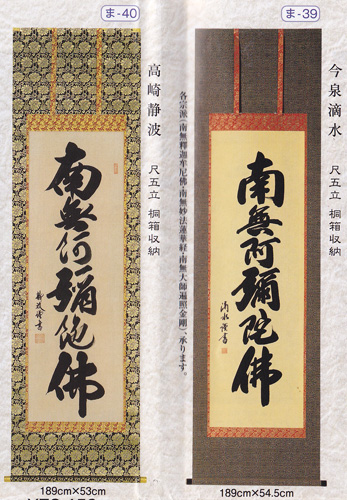 ま-39
今泉滴水
尺五立 桐箱収納
南無阿彌陀佛
滴水謹書
189cm×54.5cm
各宗派「南無釋迦牟尼佛・南無妙法蓮華経・南無大師遍照金剛」、承ります。
ま-40
高崎静波
尺五立 桐箱収納
南無阿彌陀佛
189cm×53cm